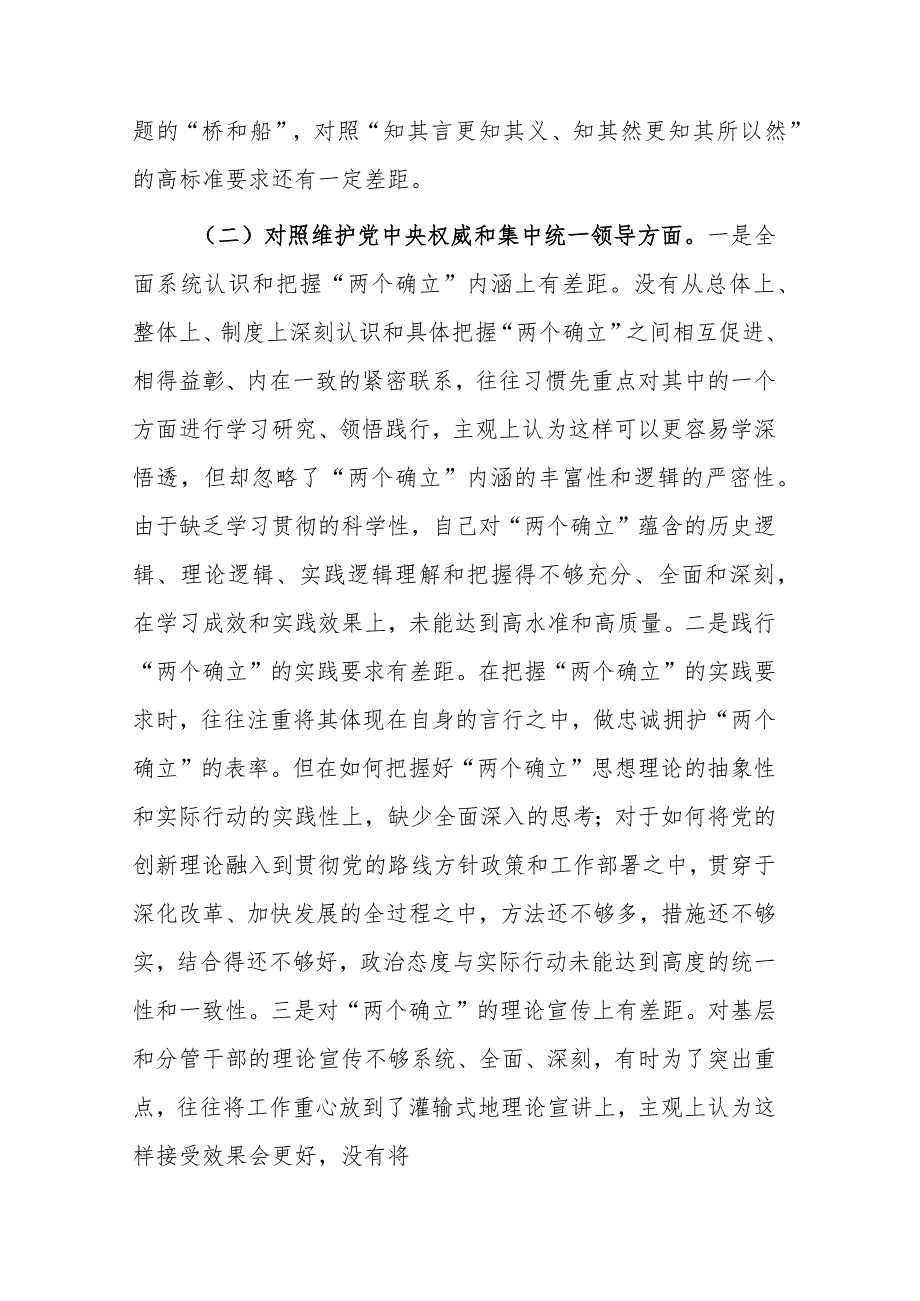 题的“桥和船”，对照“知其言更知其义、知其然更知其所以然”
的高标准要求还有一定差距。
（二）对照维护党中央权威和集中统一领导方面。一是全
面系统认识和把握“两个确立”内涵上有差距。没有从总体上、
整体上、制度上深刻认识和具体把握“两个确立”之间相互促进、
相得益彰、内在一致的紧密联系，往往习惯先重点对其中的一个
方面进行学习研究、领悟践行，主观上认为这样可以更容易学深
悟透，但却忽略了“两个确立”内涵的丰富性和逻辑的严密性。
由于缺乏学习贯彻的科学性，自己对“两个确立”蕴含的历史逻
辑、理论逻辑、实践逻辑理解和把握得不够充分、全面和深刻，
在学习成效和实践效果上，未能达到高水准和高质量。二是践行
“两个确立”的实践要求有差距。在把握“两个确立”的实践要
求时，往往注重将其体现在自身的言行之中，做忠诚拥护“两个
确立”的表率。但在如何把握好“两个确立”思想理论的抽象性
和实际行动的实践性上，缺少全面深入的思考；对于如何将党的
创新理论融入到贯彻党的路线方针政策和工作部署之中，贯穿于
深化改革、加快发展的全过程之中，方法还不够多，措施还不够
实，结合得还不够好，政治态度与实际行动未能达到高度的统一
性和一致性。三是对“两个确立”的理论宣传上有差距。对基层
和分管干部的理论宣传不够系统、全面、深刻，有时为了突出重
点，往往将工作重心放到了灌输式地理论宣讲上，主观上认为这
样接受效果会更好，没有将